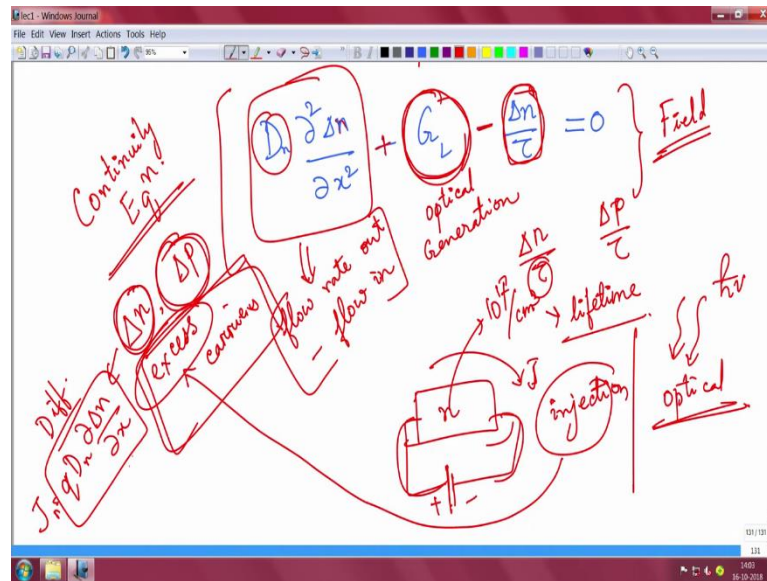 lec1 - Windows Journal
File Edit View Insert Actions Tools Help
95%
B I
Continuity
Eqn.
Dn ∂²Δn/∂x² + GL - Δn/τ = 0
Field
optical
Generation
Δn/τ
Δp/τ
flow rate out
- flow in
Δn, Δp
excess
carriers
10¹⁷/cm³
lifetime
hν
optical
J
n
injection
+ -
Diff.
Jn = q Dn ∂Δn/∂x
131 / 131
131
1403
16-10-2018